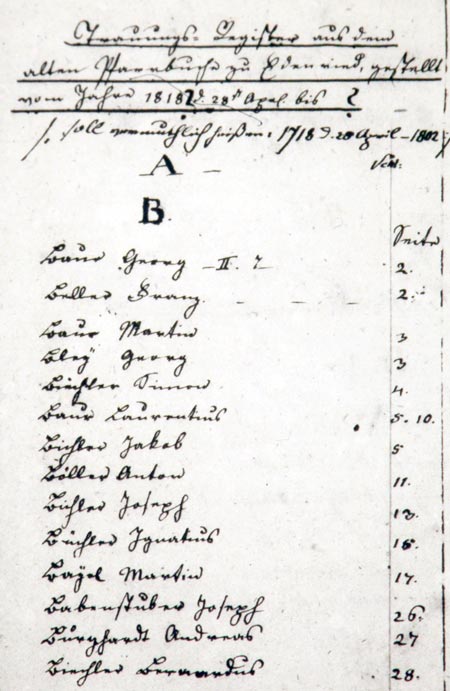 Trauungs-Register aus dem
alten Pfarrbuche zu Edenried, gestellt
vom Jahre 1818? d. 28t April bis ?
/: soll vermuthlich heißen: 1718 d. 28 April – 1802 :/
A –
B.
Seite
Baur Georg – II. ? 2.
Beller Franz. – – – 2.
Baur Martin 3
Bley Georg 3
Büchler Simon 4.
Baur Laurentius 5. 10.
Bichler Jakob 5
Böller Anton 11.
Bichler Joseph 13.
Büchler Ignatius 15.
Martin 17.
Babenstuber Joseph 26.
Burghardt Andreas 27
Biechler Bernardus 28.